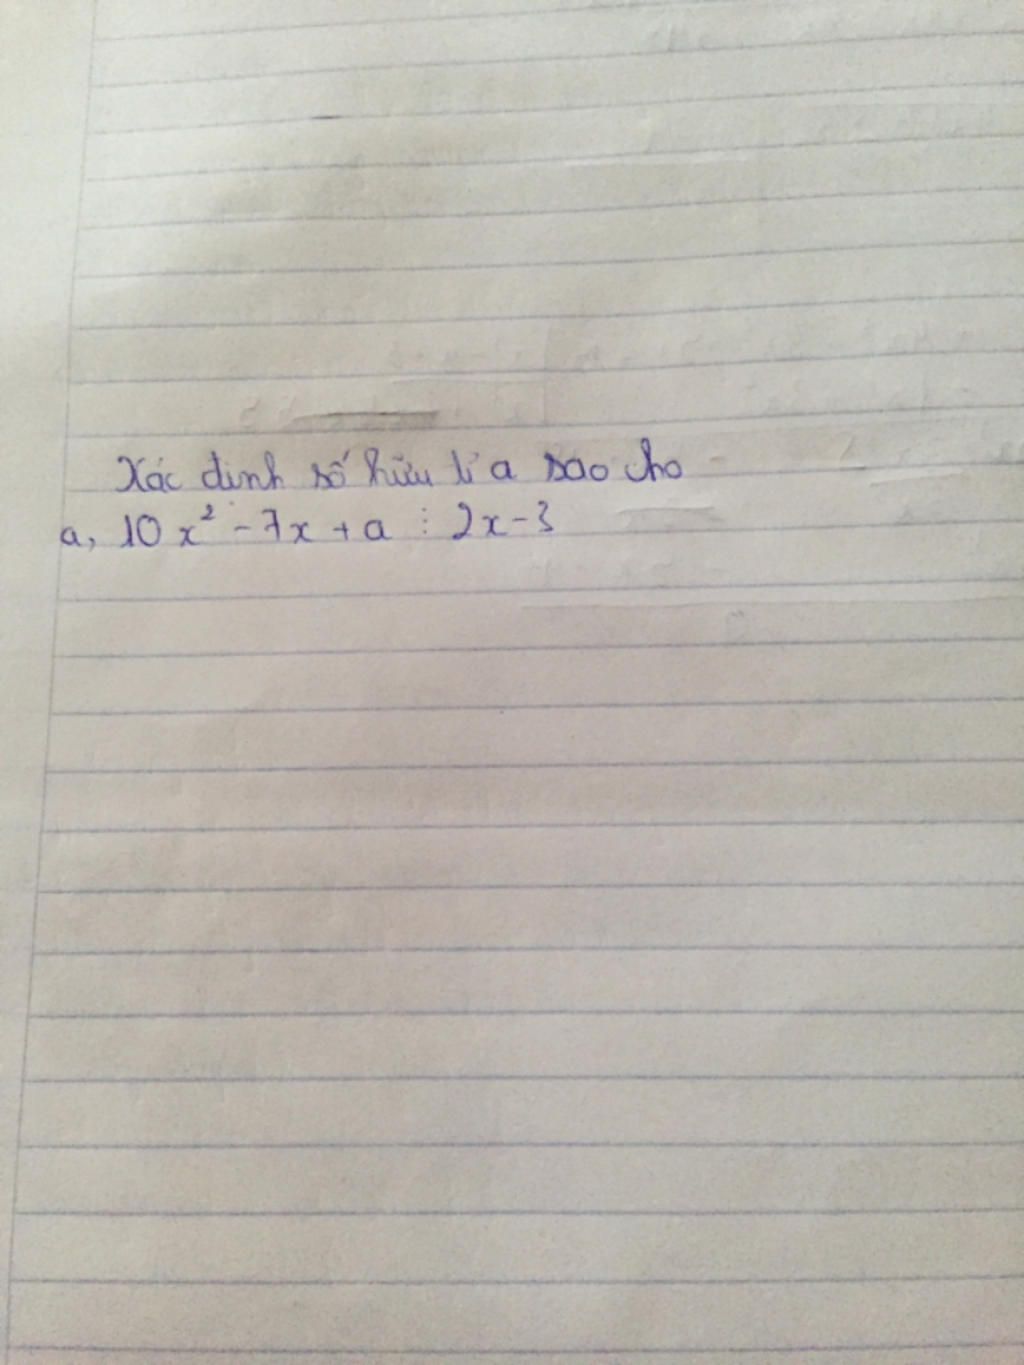 Xác định số hữu tỉ a sao cho
a, 10x² - 7x + a ⋮ 2x - 3